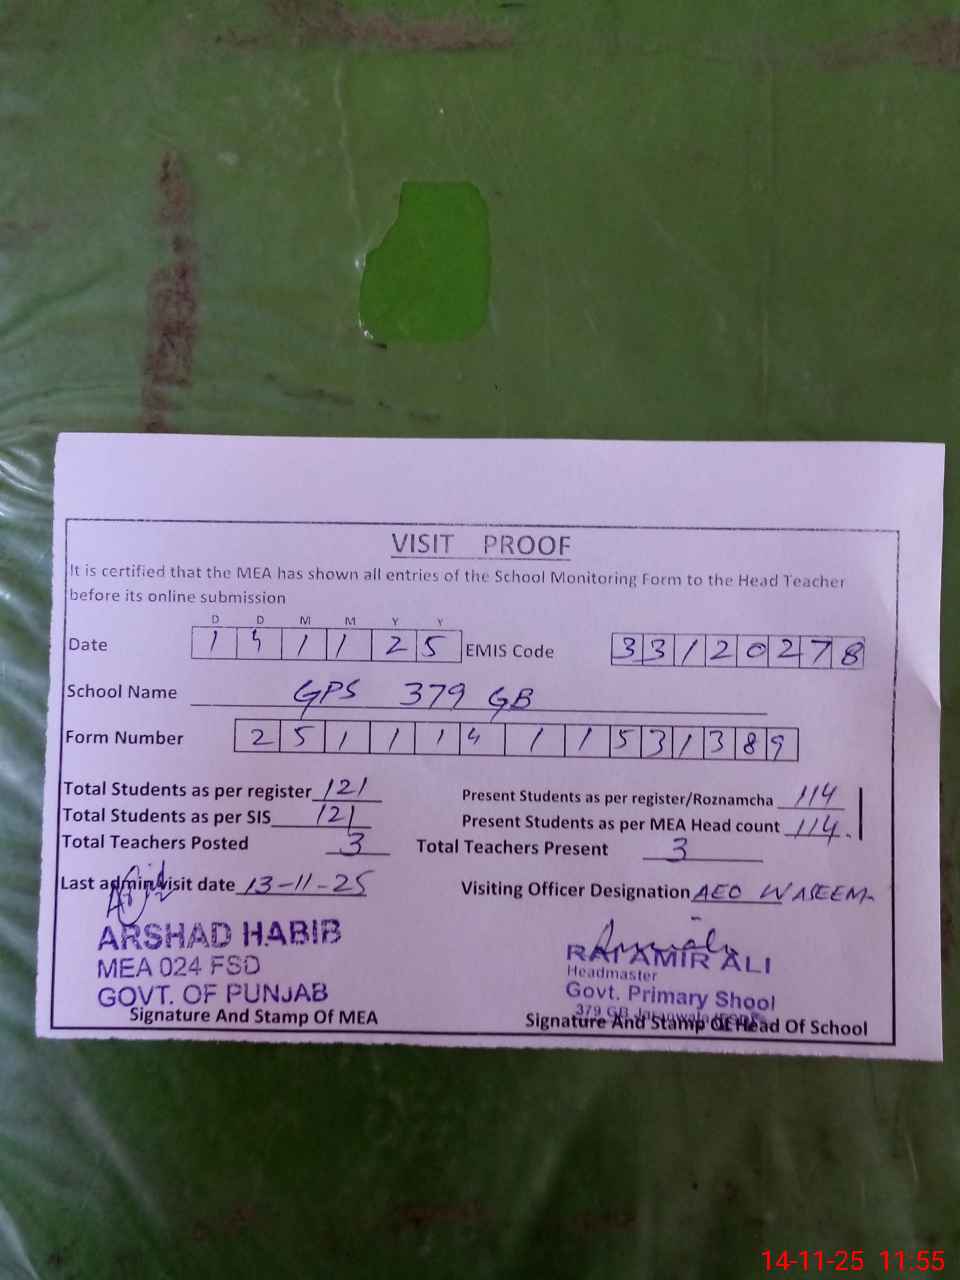 VISIT PROOF
It is certified that the MEA has shown all entries of the School Monitoring Form to the Head Teacher
before its online submission
D D M M Y Y
Date 1 4 1 1 2 5 EMIS Code 3 3 1 2 0 2 7 8
School Name GPS 379 GB
Form Number 2 5 1 1 1 4 1 1 5 3 1 3 8 9
Total Students as per register 121 Present Students as per register/Roznamcha 114
Total Students as per SIS 121 Present Students as per MEA Head count 114.
Total Teachers Posted 3 Total Teachers Present 3
Last admin visit date 13-11-25 Visiting Officer Designation AEO WASEEM
ARSHAD HABIB
MEA 024 FSD
GOVT. OF PUNJAB
Signature And Stamp Of MEA
RAI AMIR ALI
Headmaster
Govt. Primary Shool
379 GB
Signature And Stamp Of Head Of School
14-11-25 11.55